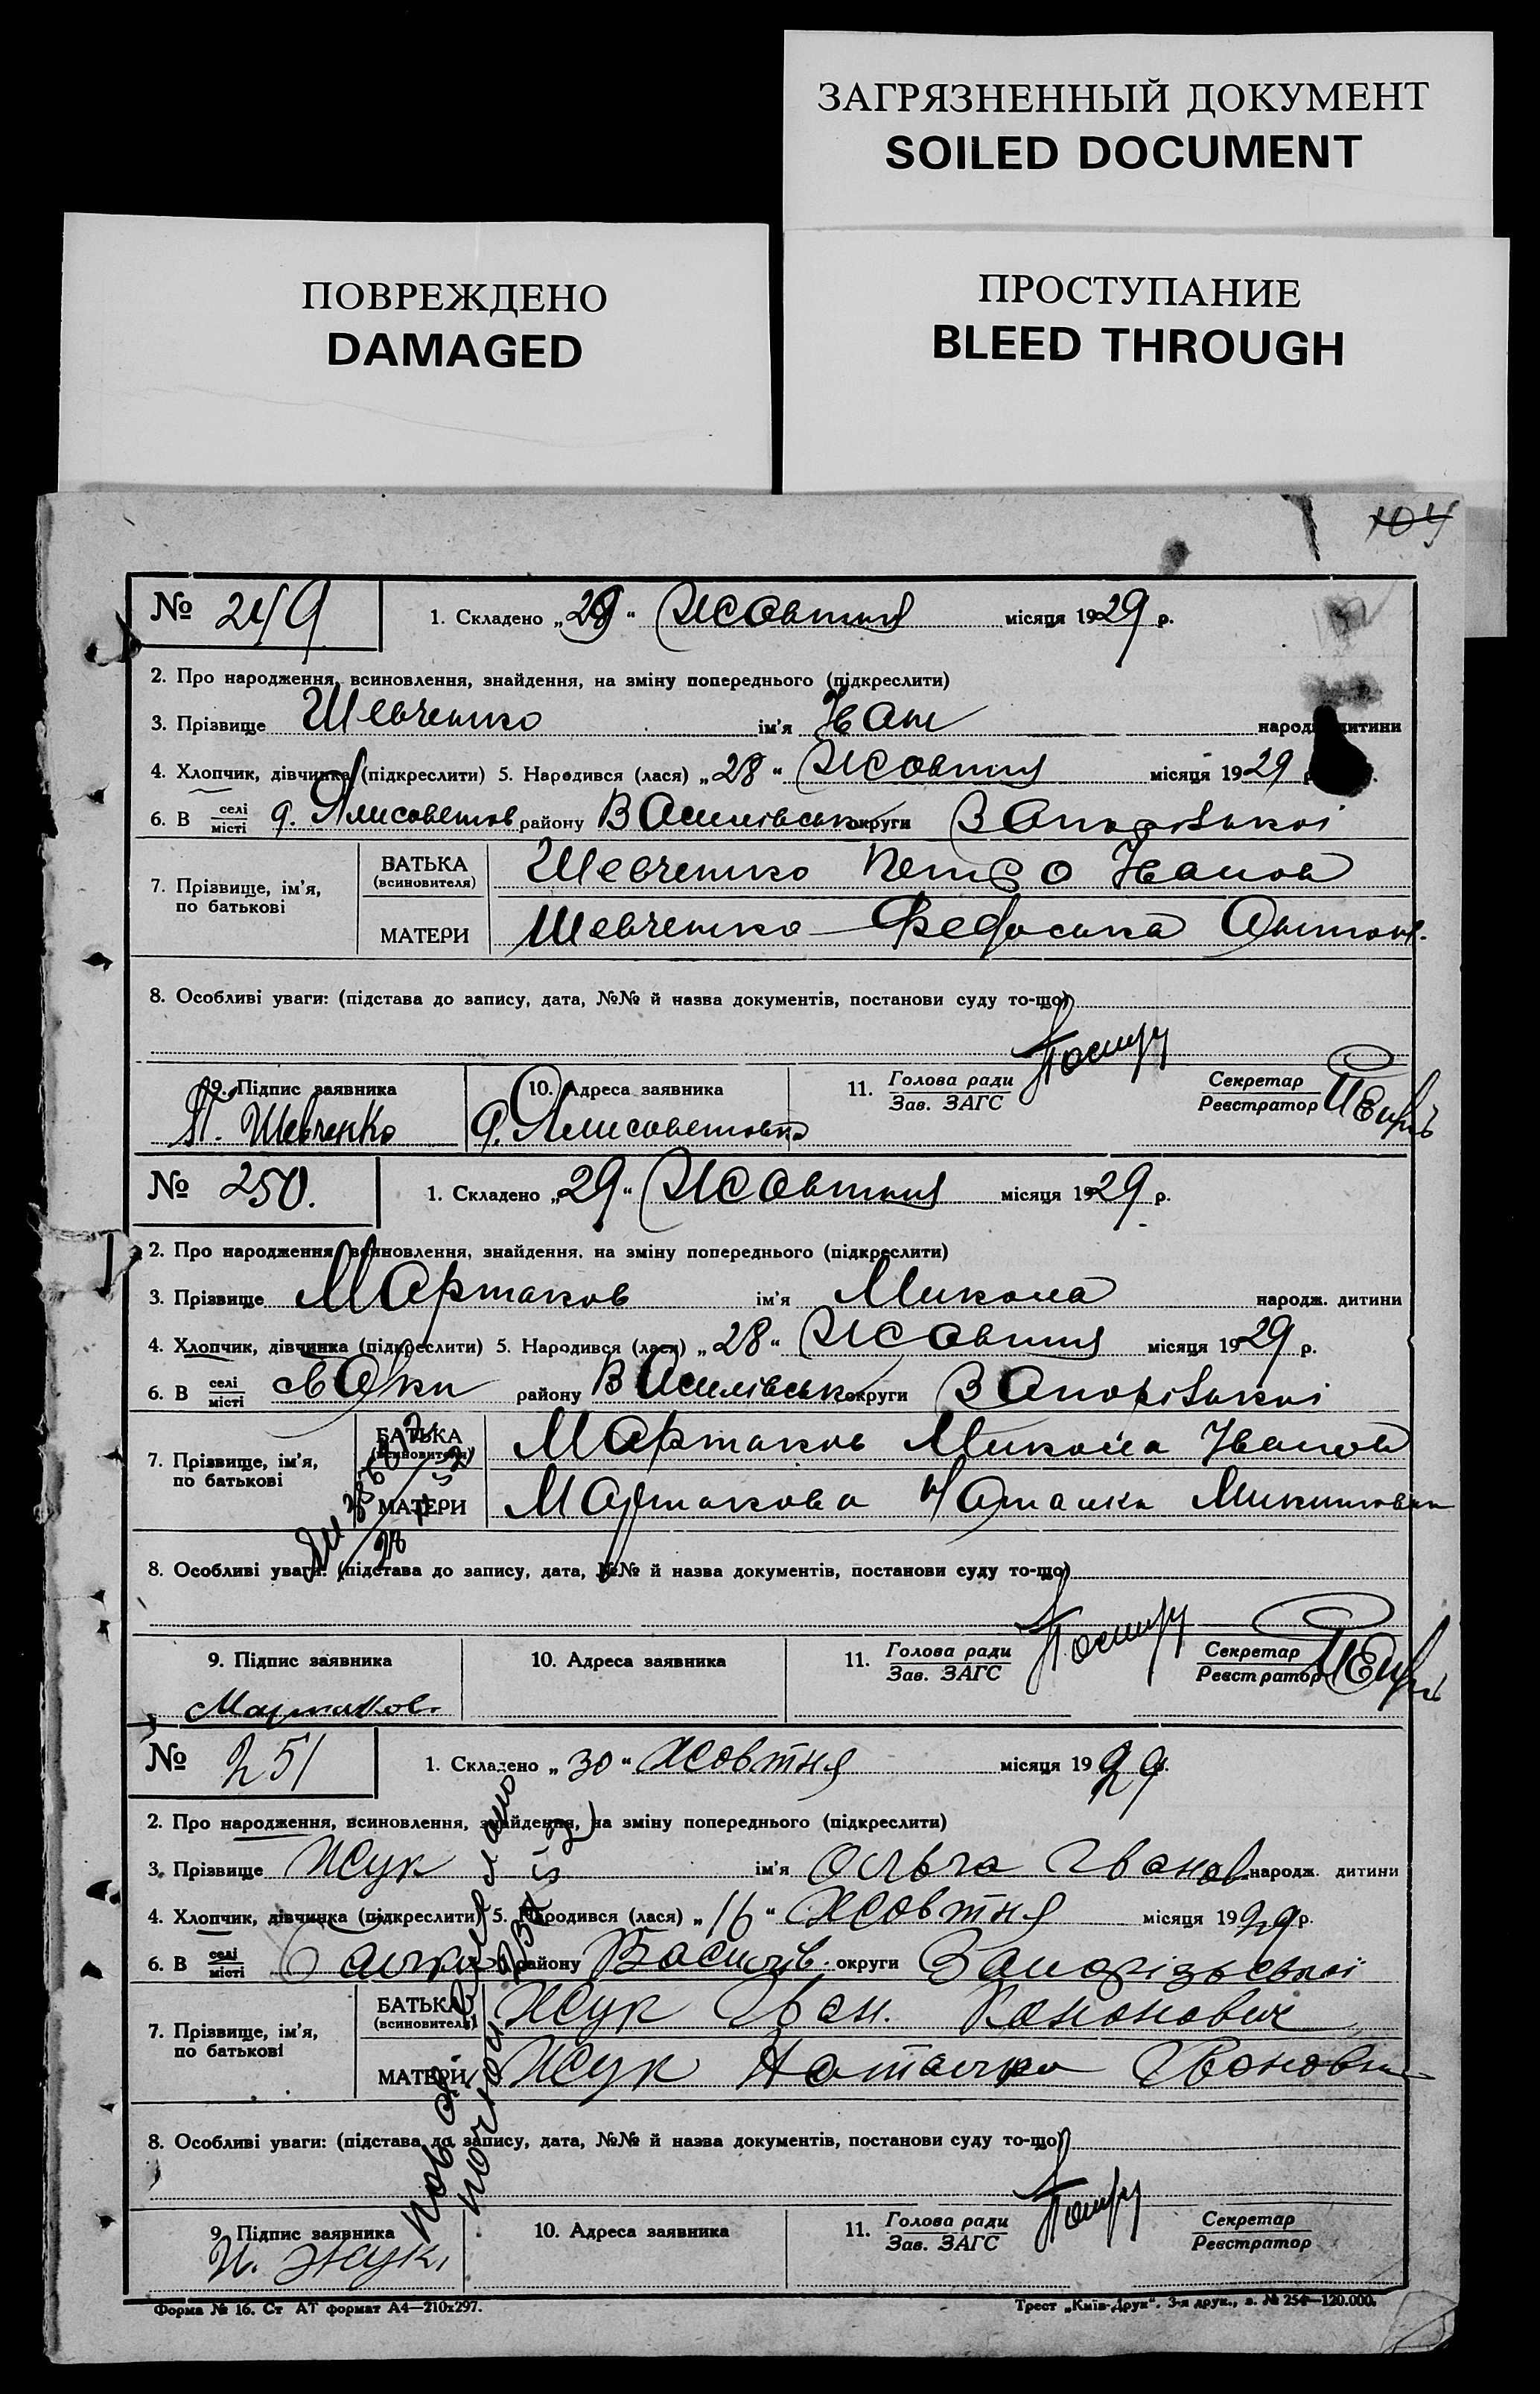 ЗАГРЯЗНЕННЫЙ ДОКУМЕНТ
SOILED DOCUMENT
ПОВРЕЖДЕНО
DAMAGED
ПРОСТУПАНИЕ
BLEED THROUGH
104
№ 249 1. Складено „29“ Жовтня місяця 1929 р.
2. Про народження, всиновлення, знайдення, на зміну попереднього (підкреслити)
3. Прізвище Шевченко ім'я Іван народж. дитини
4. Хлопчик, дівчинка (підкреслити) 5. Народився (лася) „28“ Жовтня місяця 1929 р.
6. В селі місті району Василівськ округи Запорізької
7. Прізвище, ім'я, по батькові
БАТЬКА (всиновителя) Шевченко Петро Іванов
МАТЕРИ Шевченко Федоська Антон.
8. Особливі уваги: (підстава до запису, дата, №№ й назва документів, постанови суду то-що)
9. Підпис заявника 10. Адреса заявника 11. Голова ради Зав. ЗАГС Секретар Реєстратор
П. Шевченко
№ 250. 1. Складено „29“ Жовтня місяця 1929 р.
2. Про народження, всиновлення, знайдення, на зміну попереднього (підкреслити)
3. Прізвище Мартаков ім'я Микола народж. дитини
4. Хлопчик, дівчинка (підкреслити) 5. Народився (лася) „28“ Жовтня місяця 1929 р.
6. В селі місті району Василівськ округи Запорізької
7. Прізвище, ім'я, по батькові
БАТЬКА (всиновителя) Мартаков Микола Іванов
МАТЕРИ Мартакова Наталка
8. Особливі уваги: (підстава до запису, дата, №№ й назва документів, постанови суду то-що)
9. Підпис заявника 10. Адреса заявника 11. Голова ради Зав. ЗАГС Секретар Реєстратор
Мартаков.
№ 251 1. Складено „30“ Жовтня місяця 1929 р.
2. Про народження, всиновлення, знайдення, на зміну попереднього (підкреслити)
3. Прізвище Жук ім'я Ольга Іванов. народж. дитини
4. Хлопчик, дівчинка (підкреслити) 5. Народився (лася) „16“ Жовтня місяця 1929 р.
6. В селі місті Балки району Василів. округи Запорізської
7. Прізвище, ім'я, по батькові
БАТЬКА (всиновителя) Жук Іван. Кононович
МАТЕРИ Жук Наталка Івановна
8. Особливі уваги: (підстава до запису, дата, №№ й назва документів, постанови суду то-що)
9. Підпис заявника 10. Адреса заявника 11. Голова ради Зав. ЗАГС Секретар Реєстратор
И. Жук
Форма № 16. Ст АТ формат А4—210x297.
Трест „Київ-Друк“. 3-я друк., з. № 254—120.000.